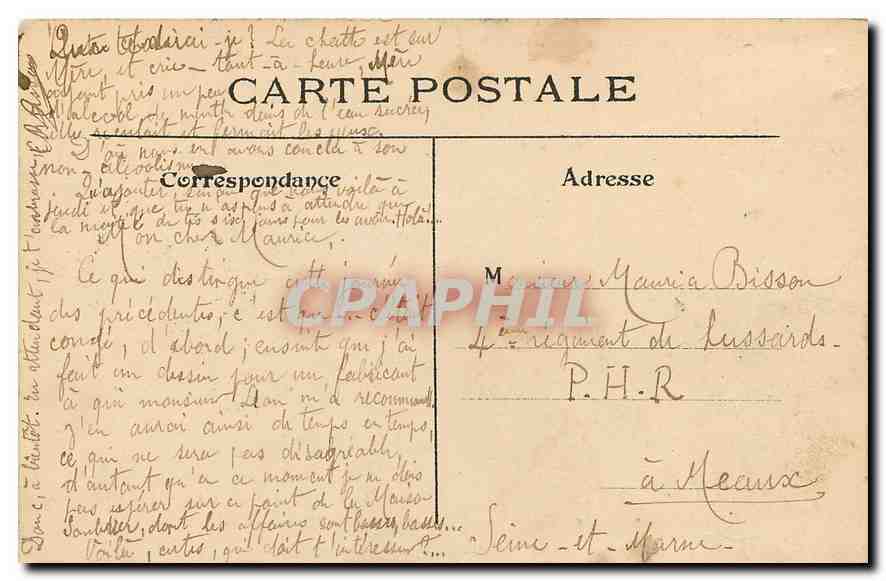 CARTE POSTALE
Correspondance
Adresse
Mon cher Maurice,
Ce qui distingue cette journée
des précédentes, c'est que c'était
congé, d'abord ; ensuite que j'ai
fait un dessin pour un fabricant
à qui monsieur Léon m'a recommandé.
J'en aurai ainsi de temps en temps,
ce qui ne sera pas désagréable,
d'autant qu'en ce moment je ne dois
pas espérer sur ce point de la Maison
dont les affaires sont basses, basses...
Voilà, certes, qui doit t'intéresser !...
Que te dirai-je ? La chatte est sur
Mère, et crie tout-à-l'heure, Mère
ayant pris un peu
d'alcool de menthe dans de l'eau sucrée,
elle reniflait et fermait les yeux.
D'où nous en avons conclu à son
non-alcoolisme
Qu'ajouter, sinon que nous voilà à
jeudi et que tu n'as plus à attendre que
la moitié de tes six jours pour les avoir. Holà !...
Donc, à bientôt. En attendant, je t'embrasse,
Monsieur Maurice Bisson
4ème régiment de hussards
P.H.R
à Meaux
Seine-et-Marne
CPAPHIL